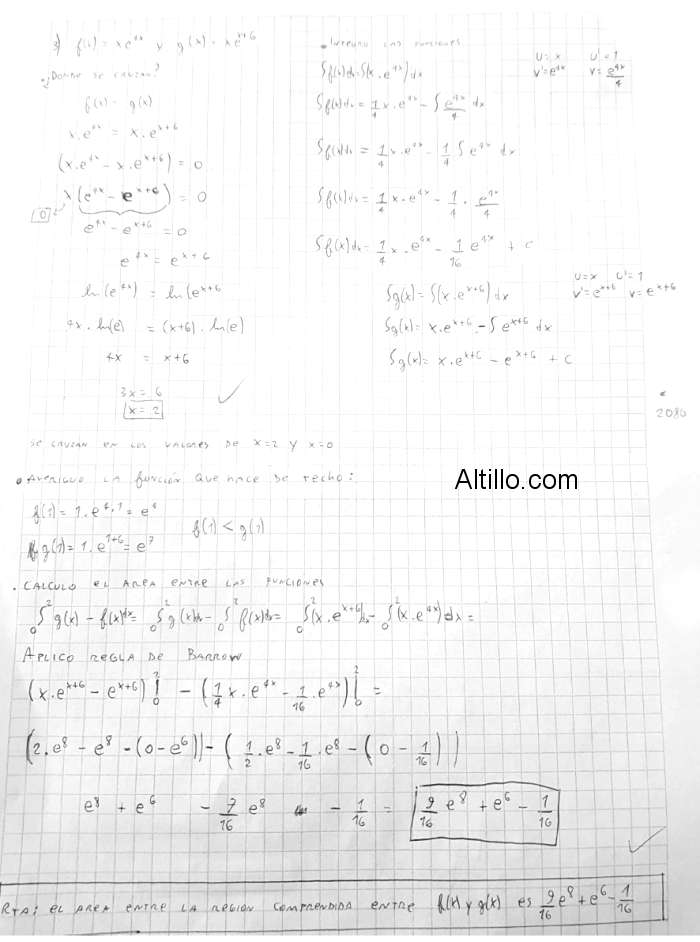 3) f(x) = x e^{4x} y g(x) = x e^{x+6}
• ¿Donde se cruzan?
f(x) = g(x)
x.e^{4x} = x.e^{x+6}
(x.e^{4x} - x.e^{x+6}) = 0
x(e^{4x} - e^{x+6}) = 0
0
e^{4x} - e^{x+6} = 0
e^{4x} = e^{x+6}
ln(e^{4x}) = ln(e^{x+6}
4x.ln(e) = (x+6).ln(e)
4x = x+6
3x = 6
x = 2
SE CRUZAN EN LOS VALORES DE x=2 Y x=0
• Integro las funciones
∫f(x)dx=∫(x.e^{4x})dx
U=x U'=1
V'=e^{4x} V=e^{4x}/4
∫f(x)dx = 1/4 x.e^{4x} - ∫ e^{4x}/4 dx
∫f(x)dx = 1/4 x.e^{4x} - 1/4 ∫ e^{4x} dx
∫f(x)dx = 1/4 x.e^{4x} - 1/4 . e^{4x}/4
∫f(x)dx = 1/4 x.e^{4x} - 1/16 e^{4x} + c
U=x U'=1
V'=e^{x+6} V=e^{x+6}
∫g(x) = ∫(x.e^{x+6})dx
∫g(x) = x.e^{x+6} - ∫ e^{x+6} dx
∫g(x) = x.e^{x+6} - e^{x+6} + C
2080
Altillo.com
• AVERIGUO LA FUNCIÓN QUE HACE DE TECHO:
f(1) = 1.e^{4.1} = e^{4}
g(1) = 1.e^{1+6} = e^{7}
f(1) < g(1)
. CALCULO EL AREA ENTRE LAS FUNCIONES
₀∫² g(x) - f(x)dx = ₀∫² g(x)dx - ₀∫² f(x)dx = ₀∫² (x.e^{x+6})dx - ₀∫² (x.e^{4x})dx =
APLICO REGLA DE BARROW
(x.e^{x+6} - e^{x+6})|₀² - (1/4 x.e^{4x} - 1/16 .e^{4x})|₀² =
(2.e^8 - e^8 - (0 - e^6)) - (1/2 .e^8 - 1/16 .e^8 - (0 - 1/16))
e^8 + e^6 - 7/16 e^8 - 1/16 = 9/16 e^8 + e^6 - 1/16
RTA: EL AREA ENTRE LA REGION COMPRENDIDA ENTRE f(x) y g(x) ES 9/16 e^8 + e^6 - 1/16